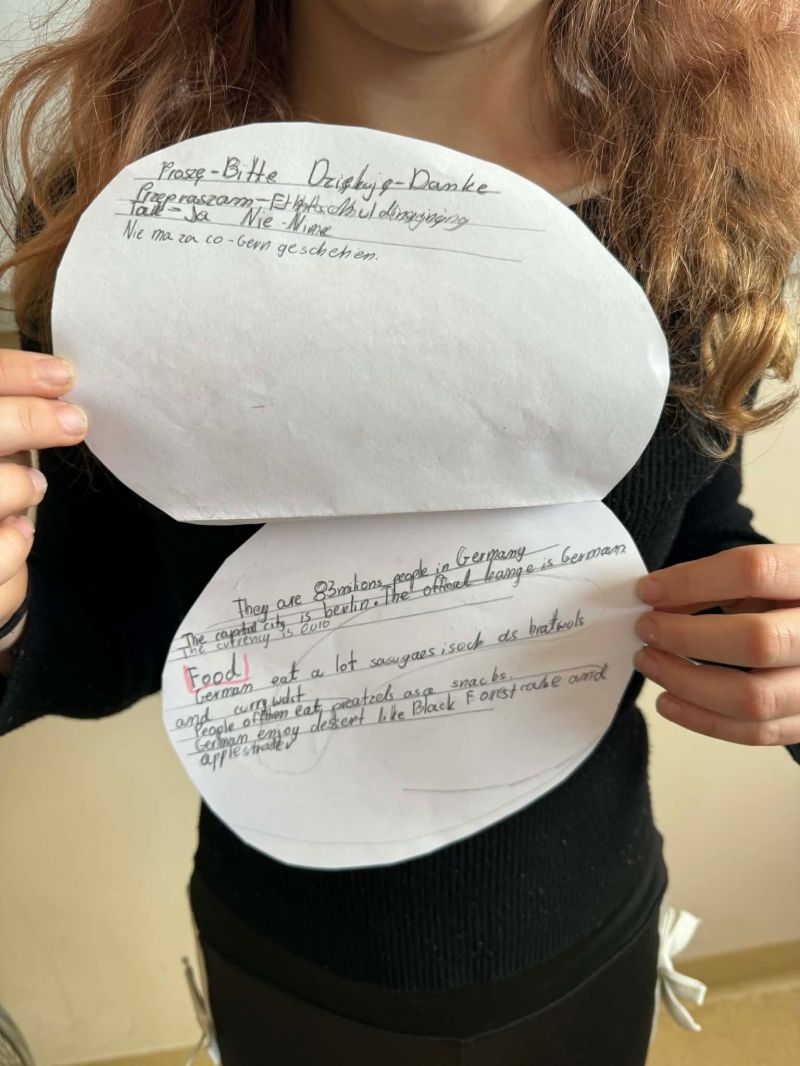 Proszę-Bitte Dziękuję-Danke
Przepraszam-
Tak-Ja Nie-Nime
Nie ma za co-Gern geschehen.
They are 83milions people in Germany
The capital city is berlin. The offical leange is German
The currency is euro
Food
German eat a lot sasugaes isoch as bratwols
and curry wdst
People ofthen eat preatzels as a snacks.
German enjoy desert like Black Forest cake and
apple strudel